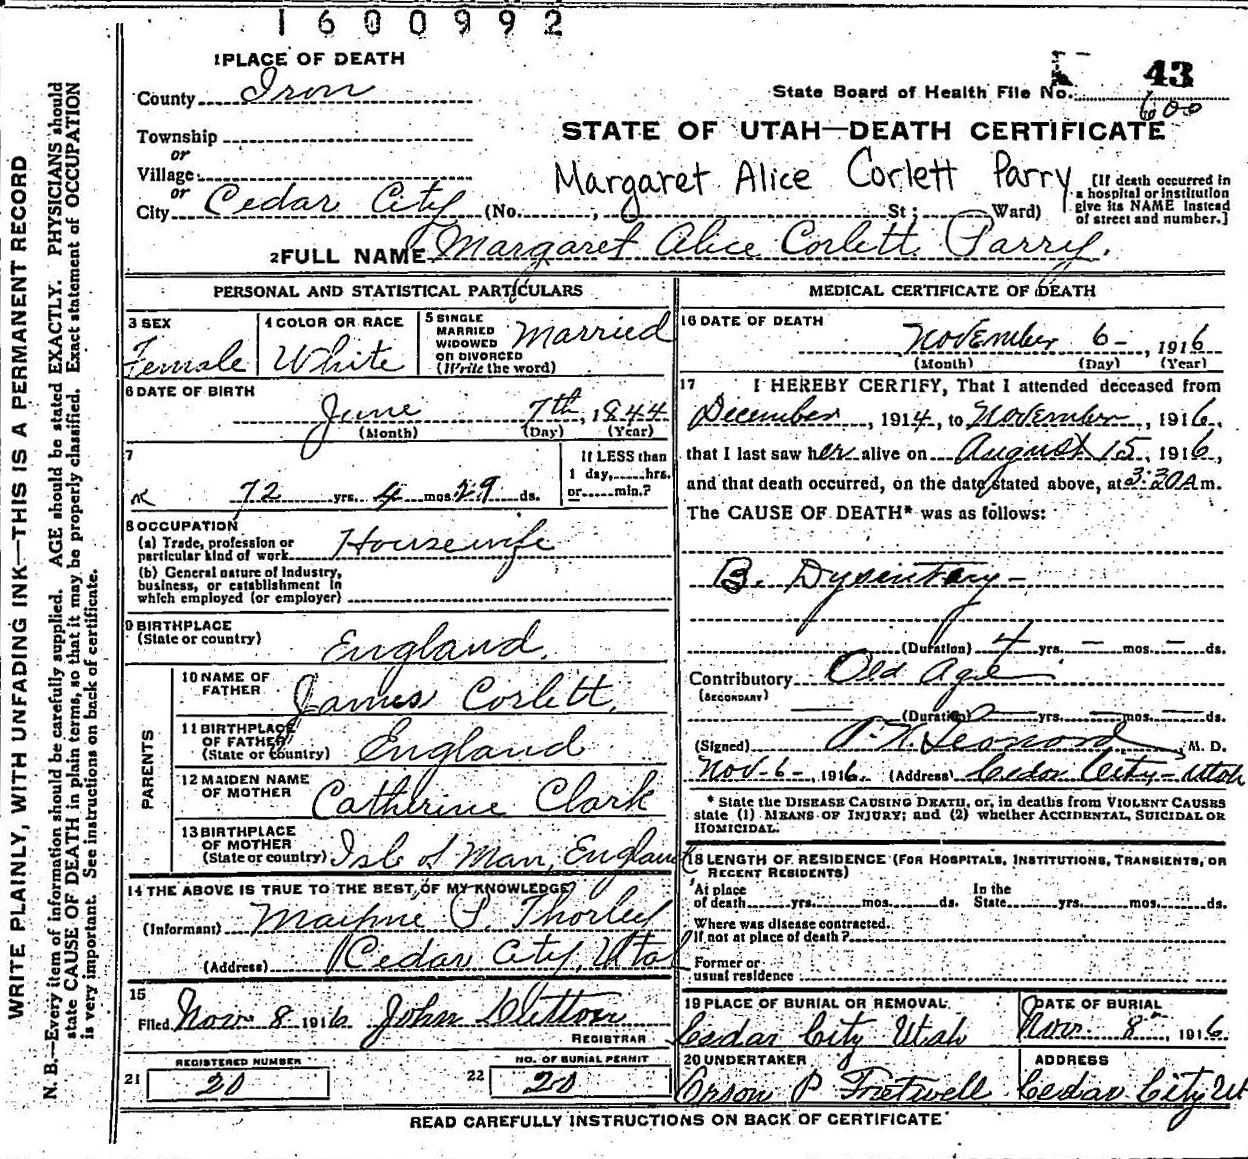 1600992
1 PLACE OF DEATH
County Iron
Township
or
Village
or
City Cedar City (No. , St; Ward)
43
State Board of Health File No. 600
STATE OF UTAH—DEATH CERTIFICATE
Margaret Alice Corlett Parry
[If death occurred in
a hospital or institution
give its NAME instead
of street and number.]
2 FULL NAME Margaret Alice Corlett Parry.
PERSONAL AND STATISTICAL PARTICULARS
3 SEX
Female
4 COLOR OR RACE
White
5 SINGLE
MARRIED
WIDOWED
OR DIVORCED
(Write the word)
Married
6 DATE OF BIRTH
June 7th, 1844
(Month) (Day) (Year)
7
72 yrs. 4 mos. 29 ds.
If LESS than
1 day, hrs.
or min.?
8 OCCUPATION
(a) Trade, profession or
particular kind of work Housewife
(b) General nature of Industry,
business, or establishment in
which employed (or employer)
9 BIRTHPLACE
(State or country) England.
PARENTS
10 NAME OF
FATHER James Corlett.
11 BIRTHPLACE
OF FATHER
(State or country) England
12 MAIDEN NAME
OF MOTHER Catherine Clark
13 BIRTHPLACE
OF MOTHER
(State or country) Isle of Man, England
14 THE ABOVE IS TRUE TO THE BEST OF MY KNOWLEDGE
(Informant) Mayme P. Thorley
(Address) Cedar City, Utah
15
Filed Nov. 8 1916 John
REGISTRAR
REGISTERED NUMBER
21 20
NO. OF BURIAL PERMIT
22 20
MEDICAL CERTIFICATE OF DEATH
16 DATE OF DEATH
November 6-, 1916
(Month) (Day) (Year)
17 I HEREBY CERTIFY, That I attended deceased from
December, 1914, to November, 1916,
that I last saw her alive on August 15, 1916,
and that death occurred, on the date stated above, at 3:20 A m.
The CAUSE OF DEATH* was as follows:
B. Dysentary-
(Duration) 4 yrs. — mos. — ds.
Contributory Old Age
(SECONDARY)
(Duration) yrs. mos. ds.
(Signed) Leonard, M. D.
Nov-6-, 1916. (Address) Cedar City-Utah
* State the DISEASE CAUSING DEATH, or, in deaths from VIOLENT CAUSES
state (1) MEANS OF INJURY; and (2) whether ACCIDENTAL, SUICIDAL OR
HOMICIDAL.
18 LENGTH OF RESIDENCE (FOR HOSPITALS, INSTITUTIONS, TRANSIENTS, OR
RECENT RESIDENTS)
At place
of death yrs. mos. ds.
In the
State yrs. mos. ds.
Where was disease contracted.
If not at place of death?
Former or
usual residence
19 PLACE OF BURIAL OR REMOVAL
Cedar City Utah
DATE OF BURIAL
Nov. 8th, 1916
20 UNDERTAKER
Orson P Fretwell
ADDRESS
Cedar City Ut
READ CAREFULLY INSTRUCTIONS ON BACK OF CERTIFICATE
WRITE PLAINLY, WITH UNFADING INK—THIS IS A PERMANENT RECORD
N. B.—Every item of information should be carefully supplied. AGE should be stated EXACTLY. PHYSICIANS should
state CAUSE OF DEATH in plain terms, so that it may be properly classified. Exact statement of OCCUPATION
is very important. See instructions on back of certificate.